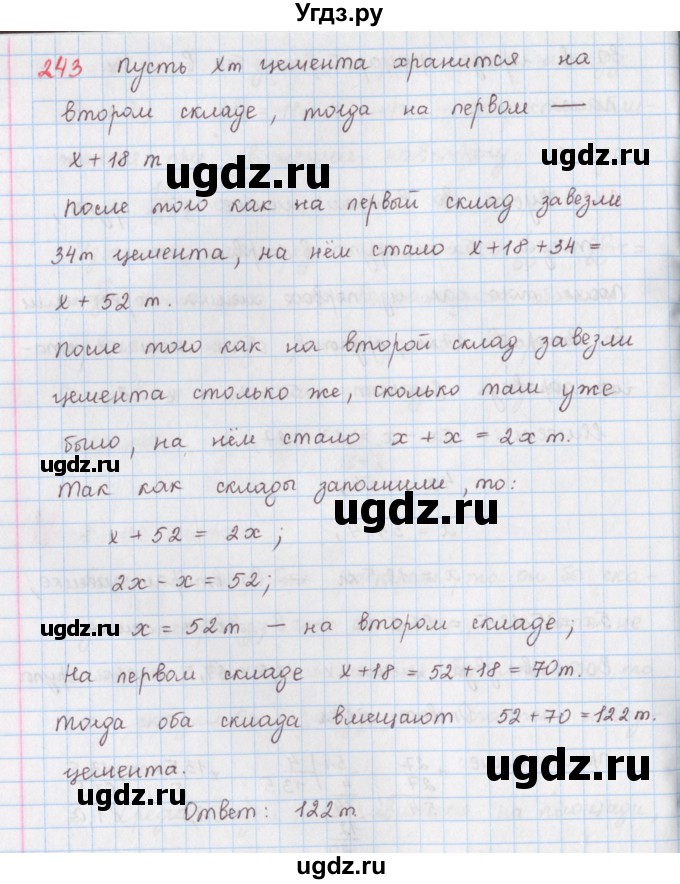 Угдз.ру
243 Пусть x т цемента хранится на
втором складе, тогда на первом —
x + 18 т
ugdz.ru
ugdz.ru
После того как на первый склад завезли
34т цемента, на нём стало x + 18 + 34 =
ugdz.ru
ugdz.ru
x + 52 т.
После того как на второй склад завезли
цемента столько же, сколько там уже
было, на нём стало x + x = 2x т.
ugdz.ru
Так как склады заполнили, то:
ugdz.ru
x + 52 = 2x;
2x - x = 52;
ugdz.ru
x = 52 т — на втором складе;
На первом складе x + 18 = 52 + 18 = 70т.
Тогда оба склада вмещают 52 + 70 = 122 т.
цемента.
ugdz.ru
ugdz.ru
Ответ: 122 т
ugdz.ru